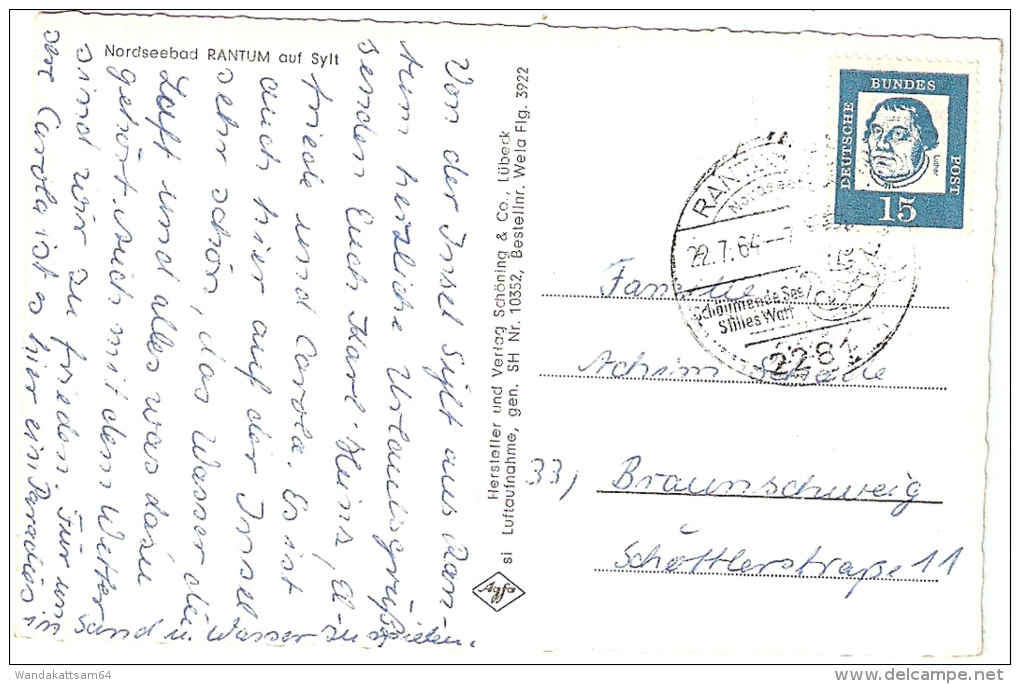 Nordseebad RANTUM auf Sylt
Von der Insel Sylt aus Ran-
tum herzliche Urlaubsgrüße
senden Euch Karl-Heinz, El-
friede und Carola. Es ist
auch hier auf der Insel
sehr schön, das Wasser die
Luft und alles was dazu
gehört. Auch mit dem Wetter
sind wir zu frieden. Für un
sere Carola ist es hier ein Paradies in
Sand u. Wasser zu spielen.
Hersteller und Verlag Schöning & Co., Lübeck
si Luftaufnahme, gen. SH Nr. 10352, Bestellnr. Wela Flg. 3922
Agfa
DEUTSCHE
BUNDES
POST
15
RANTUM
Nordseebad
22.7.64--7
Schäumende See/
Stilles Watt
2281
Familie
Achim
33) Braunschweig
Schöttlerstraße 11
Wandakattsam64
www.delcampe.net